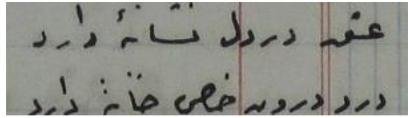 عشق در دل نشانهٔ دارد
درد درون خصی خانهٔ دارد